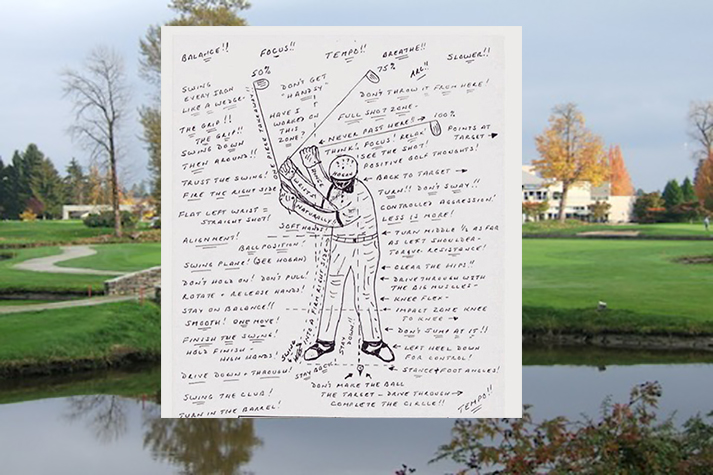 BALANCE!! FOCUS!! TEMPO!! BREATHE!! SLOWER!!
50% 75% ARG!!
SWING
EVERY IRON
LIKE A WEDGE.
DON'T GET
"HANDLY"
DON'T THROW IT FROM HERE!
HAVE I
WORKED ON
THIS
ZONE?
FULL SHOT ZONE-
THE GRIP!!
THE GRIP!!
NEVER PAST HERE!! → 100%
THINK! FOCUS! RELAX!
POINTS AT
TARGET →
SWING DOWN
THEN AROUND!!
SEE THE SHOT!
POSITIVE GOLF THOUGHTS!
TRUST THE SWING!
HOGAN
← BACK TO TARGET →
FIRE THE RIGHT SIDE
TURN!! DON'T SWAY!!
CONTROLLED AGGRESSION!
FLAT LEFT WRIST =
STRAIGHT SHOT!
NATURALLY
LESS IS MORE!
SOFT HANDS!
ALIGNMENT!
BALL POSITION!
← TURN MIDDLE 1/2 AS FAR
AS LEFT SHOULDER-
TORQUE. RESISTANCE!
SWING PLANE! (SEE HOGAN)
← CLEAR THE HIPS!!
DON'T HOLD ON! DON'T PULL!
← DRIVE THROUGH WITH
THE BIG MUSCLES-
ROTATE + RELEASE HANDS!
← KNEE FLEX-
STAY ON BALANCE!!
← IMPACT ZONE KNEE
TO KNEE →
SMOOTH! ONE MOVE!
← DON'T JUMP AT IT!!
FINISH THE SWING!
HOLD FINISH-
HIGH HANDS!
SIT DOWN!!
← LEFT HEEL DOWN
FOR CONTROL!
STAY BACK!
← STANCE + FOOT ANGLES!
DRIVE DOWN + THROUGH!
DON'T MAKE THE BALL
THE TARGET - DRIVE THROUGH →
COMPLETE THE CIRCLE!!
SWING THE CLUB!
TURN IN THE BARREL!
TEMPO!!